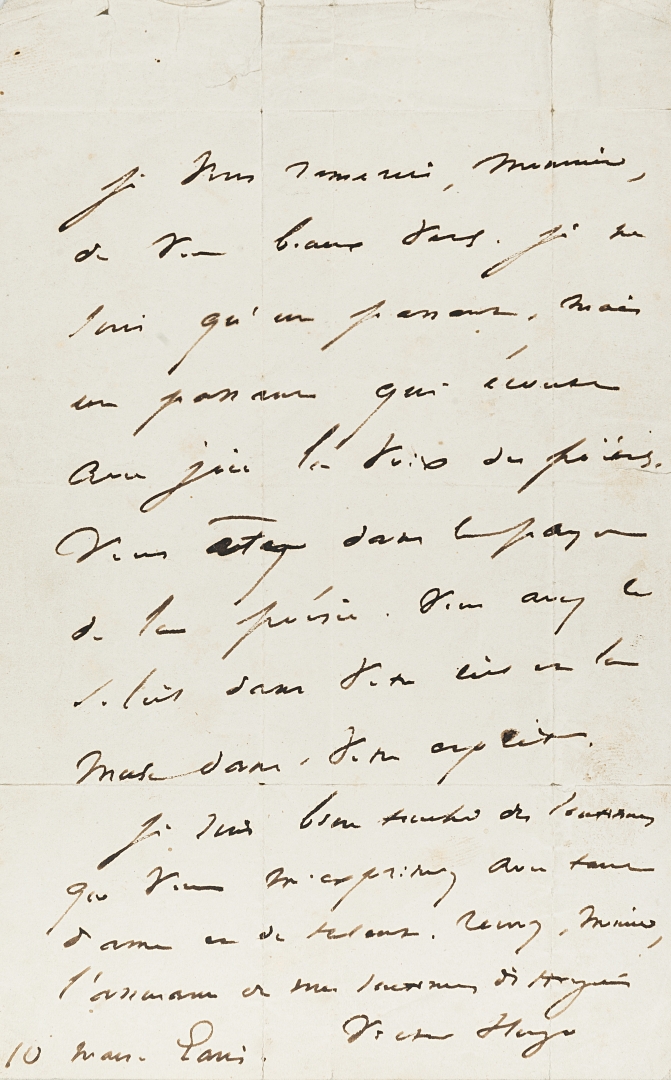 je vous remercie, Monsieur,
de vos beaux vers. je ne
suis qu'un passant, mais
un passant qui écoute
avec joie la voix des poëtes.
Vous êtes dans le pays
de la poésie. Vous avez le
soleil dans votre ciel et la
muse dans votre esprit.
je suis bien touché des sentiments
que vous m'exprimez avec tant
d'âme et de talent. Recevez, Monsieur,
l'assurance de mes sentiments distingués
Victor Hugo
10 mars. Paris.